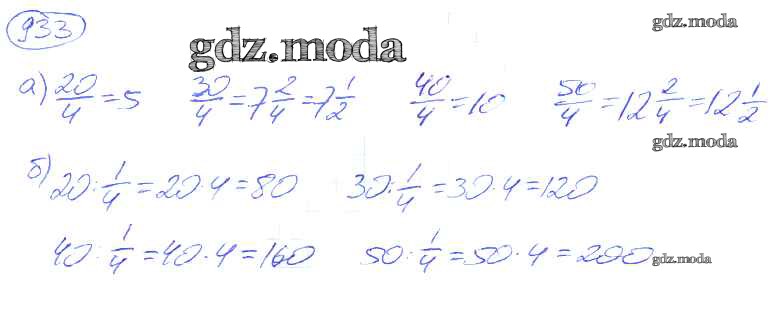 933
gdz.moda
gdz.moda
а) 20/4 = 5   30/4 = 7 2/4 = 7 1/2   40/4 = 10   50/4 = 12 2/4 = 12 1/2
gdz.moda
б) 20 : 1/4 = 20 · 4 = 80   30 : 1/4 = 30 · 4 = 120
40 : 1/4 = 40 · 4 = 160   50 : 1/4 = 50 · 4 = 200 gdz.moda